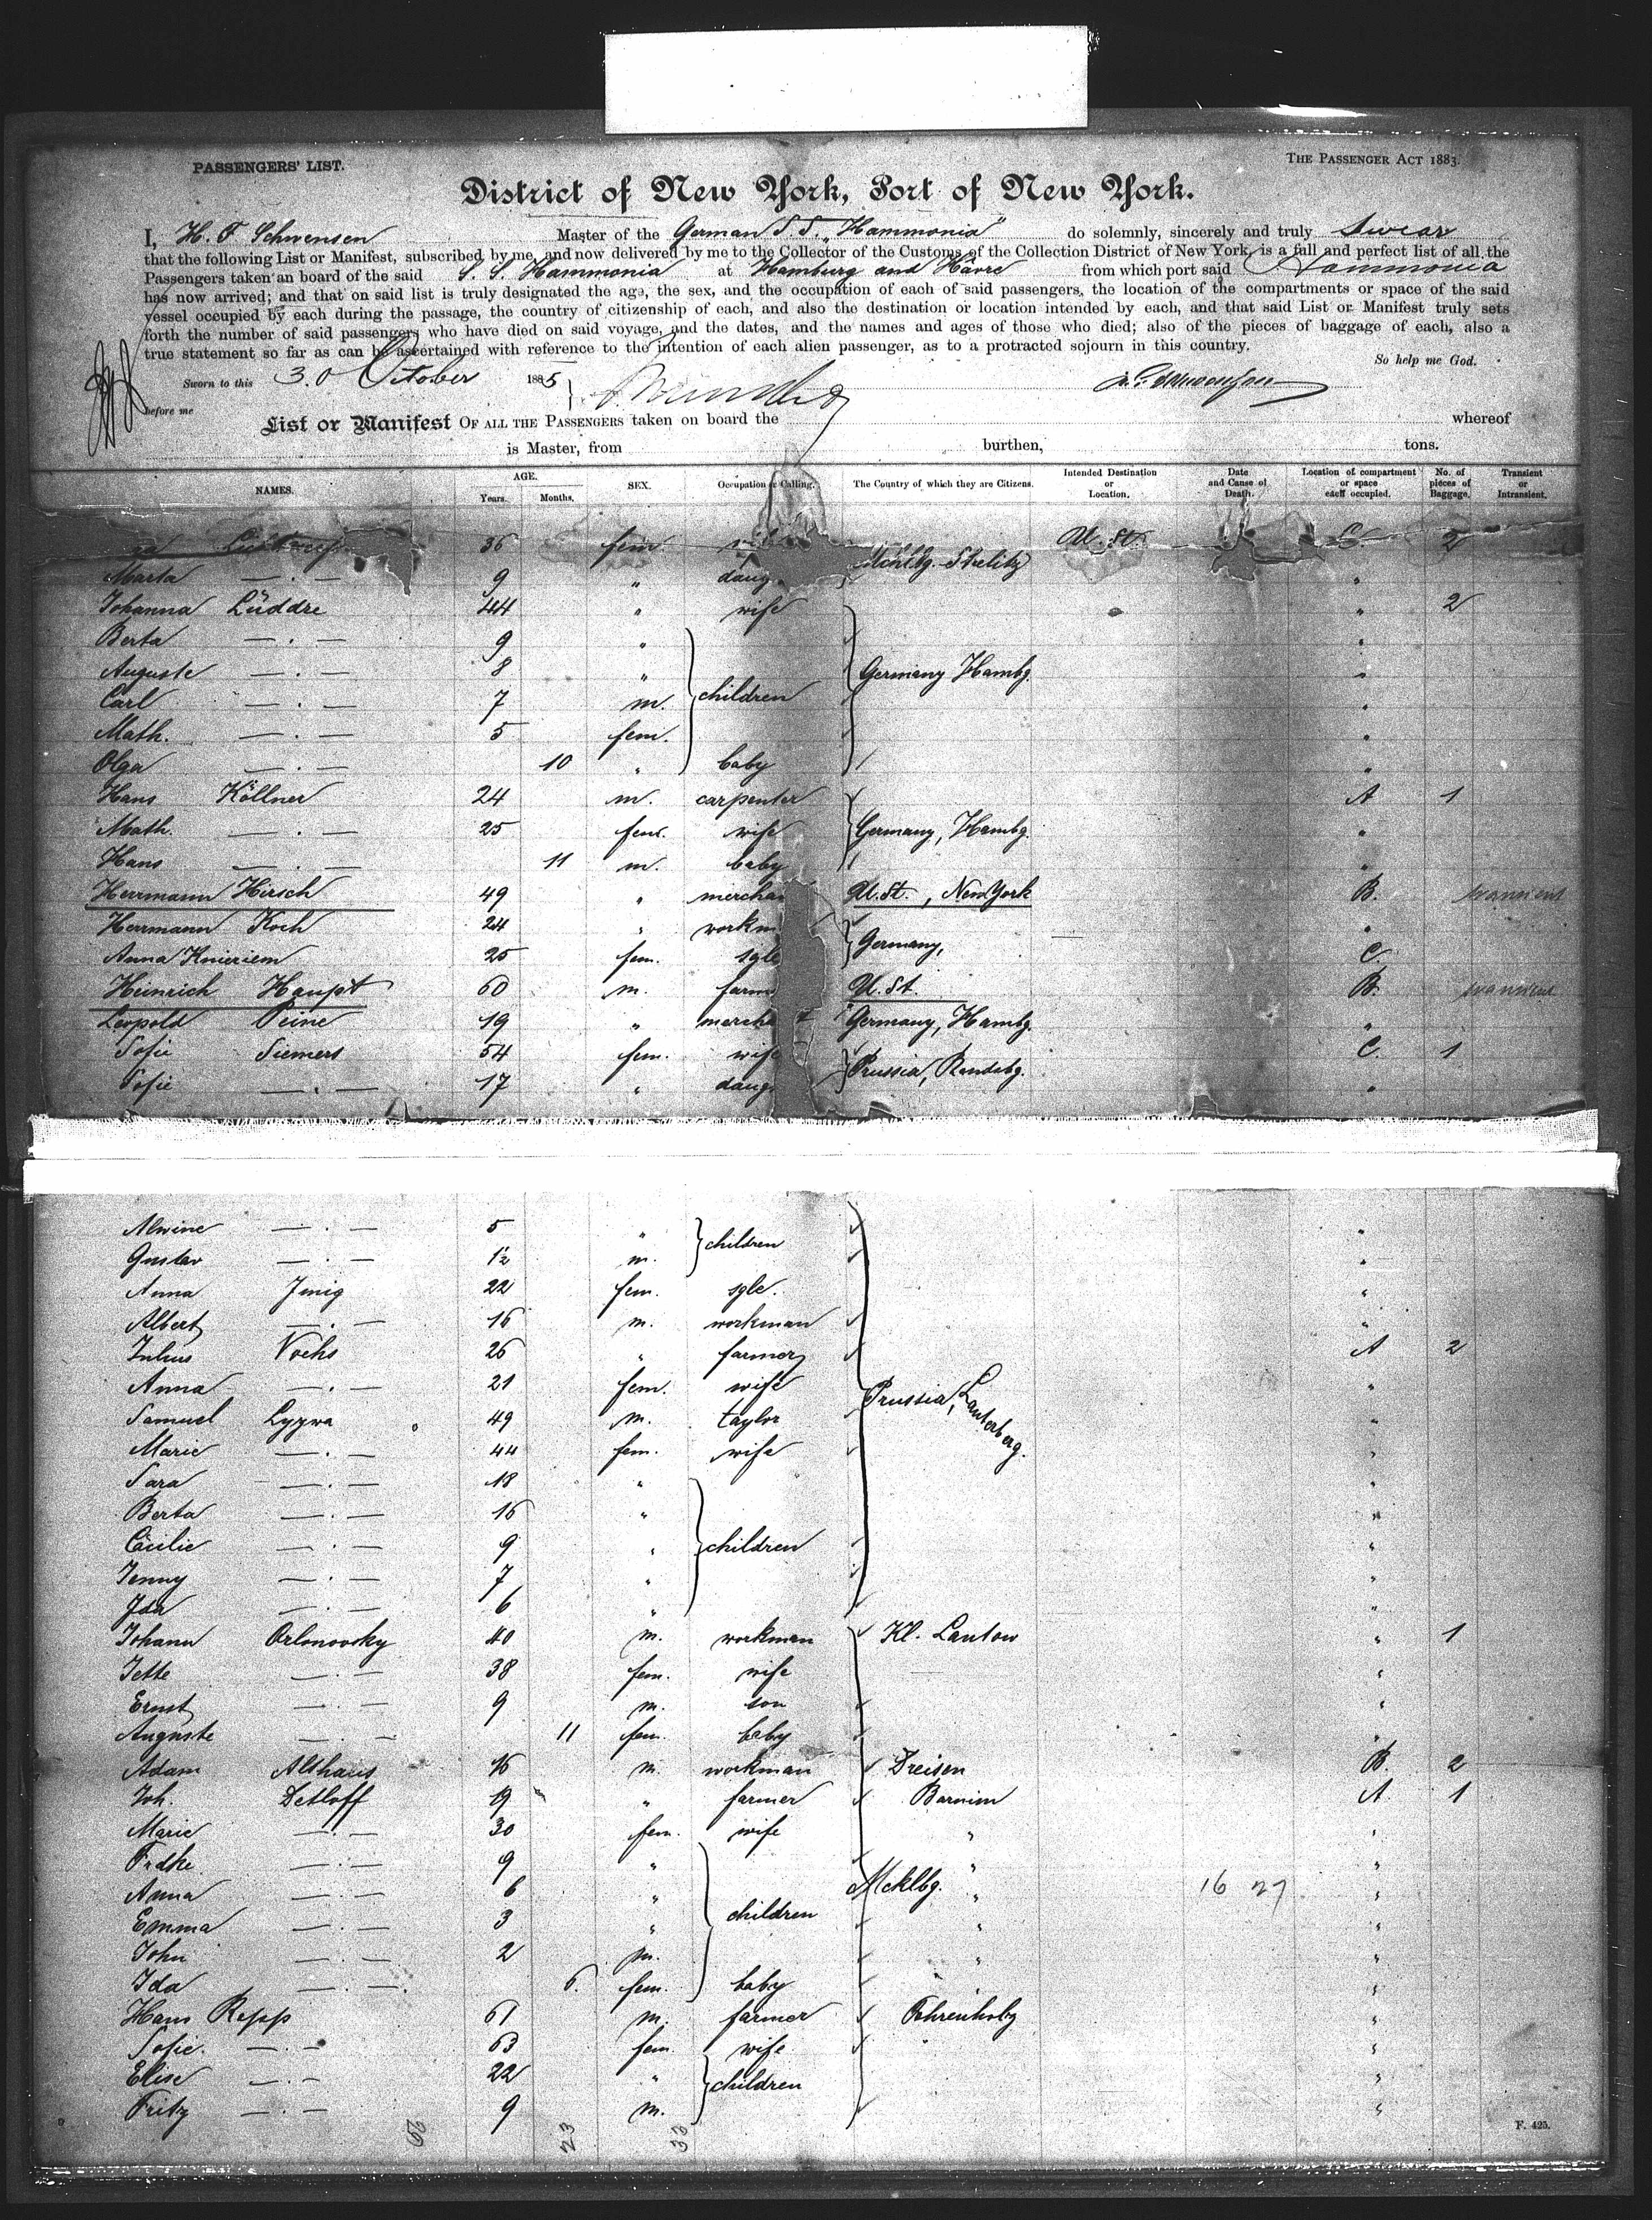 PASSENGERS' LIST.
THE PASSENGER ACT 1883.
District of New York, Port of New York.
I, H. F. Schwensen Master of the German S. S. "Hammonia" do solemnly, sincerely and truly swear
that the following List or Manifest, subscribed by me, and now delivered by me to the Collector of the Customs of the Collection District of New York, is a full and perfect list of all the
Passengers taken an board of the said S. S. Hammonia at Hamburg and Havre from which port said Hammonia
has now arrived; and that on said list is truly designated the age, the sex, and the occupation of each of said passengers, the location of the compartments or space of the said
vessel occupied by each during the passage, the country of citizenship of each, and also the destination or location intended by each, and that said List or Manifest truly sets
forth the number of said passengers who have died on said voyage, and the dates, and the names and ages of those who died; also of the pieces of baggage of each, also a
true statement so far as can be ascertained with reference to the intention of each alien passenger, as to a protracted sojourn in this country.
So help me God.
Sworn to this 30 October 1885
before me
List or Manifest OF ALL THE PASSENGERS taken on board the whereof
is Master, from burthen, tons.
NAMES. AGE. Years. Months. SEX. Occupation or Calling. The Country of which they are Citizens. Intended Destination or Location. Date and Cause of Death. Location of compartment or space each occupied. No. of pieces of Baggage. Transient or Intransient.
36 fem. U. St. C 2
Marta — . — 9 " daug. Mcklbg.-Strelitz "
Johanna Lüddre 44 " wife " 2
Berta — . — 9 " "
Auguste — . — 8 " Germany Hambg. "
Carl — . — 7 m. children "
Math. — . — 5 fem. "
Olga — . — 10 " baby "
Hans Köllner 24 m. carpenter A 1
Math. — . — 25 fem. wife Germany, Hambg. "
Hans — . — 11 m. baby "
Herrmann Hirsch 49 " mercha U. St., New York B. transient
Herrmann Koch 24 " workm "
Anna Knieriem 25 fem. sgle Germany, C.
Heinrich Haupt 60 m. farm U. St. B. transient
Leopold Peine 19 " mercha t Germany, Hambg. "
Sofie Siemers 54 fem. wife C. 1
Sofie — . — 17 " daug. Prussia, Rendsbg. "
Alwine — . — 5 " "
Gustav — . — 1½ m. children "
Anna Jinig 22 fem. sgle. "
Albert — . — 16 m. workman "
Julius Vochs 26 " farmer A 2
Anna — . — 21 fem. wife Prussia, Lauterberg. "
Samuel Lygwa 49 m. taylor "
Marie — . — 44 fem. wife "
Sara — . — 18 " "
Berta — . — 16 " "
Cäcilie — . — 9 " children "
Jenny — . — 7 " "
Ida — . — 6 " "
Johann Orlonovsky 40 m. workman Kl. Lantow " 1
Jette — . — 38 fem. wife "
Ernst — . — 9 m. son "
Auguste — . — 11 fem. baby "
Adam Althaus 16 m. workman Dreisen B. 2
Joh. Detloff 19 " farmer Barnim A. 1
Marie — . — 30 fem. wife " "
Frdke. — . — 9 " " "
Anna — . — 6 " Mcklbg. " 16 27 "
Emma — . — 3 " children " "
John — . — 2 m. " "
Ida — . — 6. fem. baby "
Hans Repp 61 m. farmer Fehrenholz "
Sofie. — . — 63 fem. wife "
Elise — . — 22 " children "
Fritz — . — 9 m. "
56 23 33
F. 425.